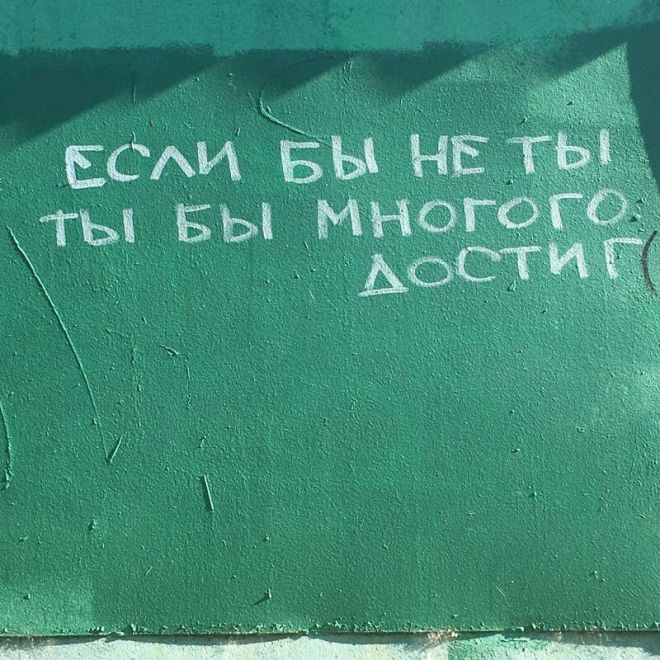 ЕСЛИ БЫ НЕ ТЫ
ТЫ БЫ МНОГОГО
ДОСТИГ(